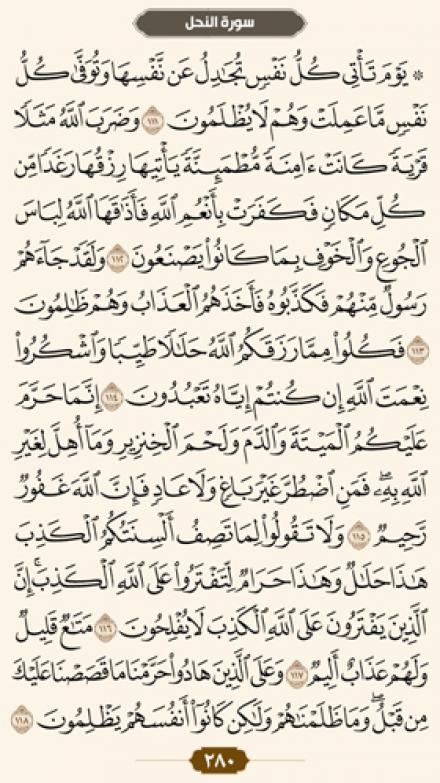 سورة النحل
۞ يَوْمَ تَأْتِى كُلُّ نَفْسٍ تُجَٰدِلُ عَن نَّفْسِهَا وَتُوَفَّىٰ كُلُّ
نَفْسٍ مَّا عَمِلَتْ وَهُمْ لَا يُظْلَمُونَ ١١١ وَضَرَبَ ٱللَّهُ مَثَلًا
قَرْيَةً كَانَتْ ءَامِنَةً مُّطْمَئِنَّةً يَأْتِيهَا رِزْقُهَا رَغَدًا مِّن
كُلِّ مَكَانٍ فَكَفَرَتْ بِأَنْعُمِ ٱللَّهِ فَأَذَٰقَهَا ٱللَّهُ لِبَاسَ
ٱلْجُوعِ وَٱلْخَوْفِ بِمَا كَانُوا۟ يَصْنَعُونَ ١١٢ وَلَقَدْ جَآءَهُمْ
رَسُولٌ مِّنْهُمْ فَكَذَّبُوهُ فَأَخَذَهُمُ ٱلْعَذَابُ وَهُمْ ظَٰلِمُونَ
١١٣ فَكُلُوا۟ مِمَّا رَزَقَكُمُ ٱللَّهُ حَلَٰلًا طَيِّبًا وَٱشْكُرُوا۟
نِعْمَتَ ٱللَّهِ إِن كُنتُمْ إِيَّاهُ تَعْبُدُونَ ١١٤ إِنَّمَا حَرَّمَ
عَلَيْكُمُ ٱلْمَيْتَةَ وَٱلدَّمَ وَلَحْمَ ٱلْخِنزِيرِ وَمَآ أُهِلَّ لِغَيْرِ
ٱللَّهِ بِهِۦۖ فَمَنِ ٱضْطُرَّ غَيْرَ بَاغٍ وَلَا عَادٍ فَإِنَّ ٱللَّهَ غَفُورٌ
رَّحِيمٌ ١١٥ وَلَا تَقُولُوا۟ لِمَا تَصِفُ أَلْسِنَتُكُمُ ٱلْكَذِبَ
هَٰذَا حَلَٰلٌ وَهَٰذَا حَرَامٌ لِّتَفْتَرُوا۟ عَلَى ٱللَّهِ ٱلْكَذِبَۚ إِنَّ
ٱلَّذِينَ يَفْتَرُونَ عَلَى ٱللَّهِ ٱلْكَذِبَ لَا يُفْلِحُونَ ١١٦ مَتَٰعٌ قَلِيلٌ
وَلَهُمْ عَذَابٌ أَلِيمٌ ١١٧ وَعَلَى ٱلَّذِينَ هَادُوا۟ حَرَّمْنَا مَا قَصَصْنَا عَلَيْكَ
مِن قَبْلُۖ وَمَا ظَلَمْنَٰهُمْ وَلَٰكِن كَانُوٓا۟ أَنفُسَهُمْ يَظْلِمُونَ ١١٨
٢٨٠